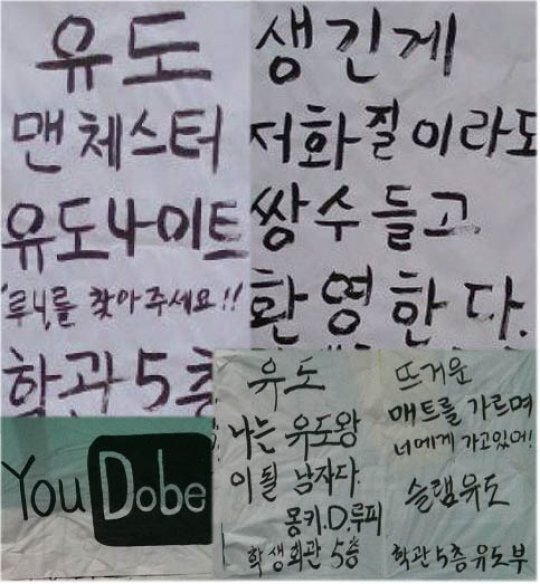 유도
맨체스터
유도4이트
'루니'를 찾아주세요!!
학관 5층
생긴게
저화질이라도
쌍수 들고
환영한다.
YouDobe
유도
나는 유도왕
이 될 남자다.
몽키.D.루피
학생회관 5층
뜨거운
매트를 가르며
너에게 가고있어!
슬램유도
학관 5층 유도부